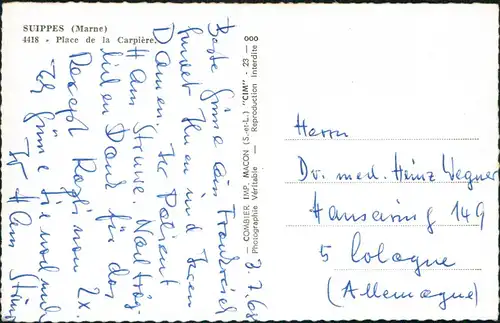 SUIPPES (Marne)
4418 - Place de la Carpière.
Beste Grüße aus Frankreich
sendet Ihnen und Ihren
Damen. Ihr Patient
Hans Struwe. Nachträg
lichen Dank für das
Rezept
Ich grüße Sie nochmals
Ihr Hans
3.7.68
— COMBIER IMP. MACON (S.-et-L.) "CIM" - 23 — 000
Photographie Véritable — Reproduction Interdite
Herrn
Dr. med. Heinz Wegner
Hansaring 149
5 Cologne
(Allemagne)